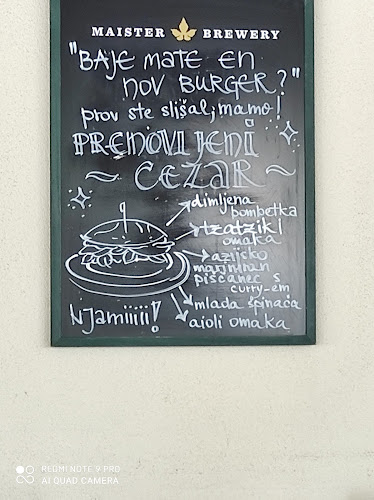 MAISTER BREWERY
"BAJE MATE EN
NOV BURGER?"
prov ste slišal, mamo!
PRENOVLJENI
~ CEZAR ~
dimljena
bombetka
tzatziki
omaka
azijsko
mariniran
piščanec s
curry-em
mlada špinača
aioli omaka
Njamiiiii!
REDMI NOTE 9 PRO
AI QUAD CAMERA